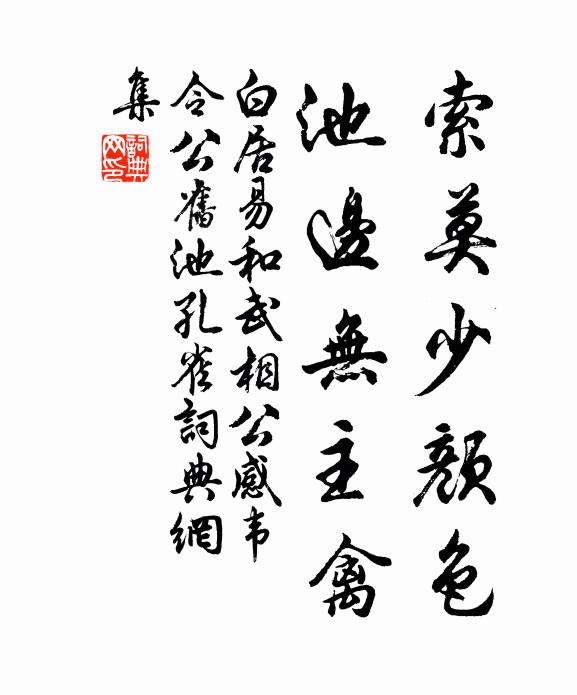 索莫少顏色
池邊無主禽
白居易和武相公感韦
令公舊池孔雀詞典網
集
詞典網印